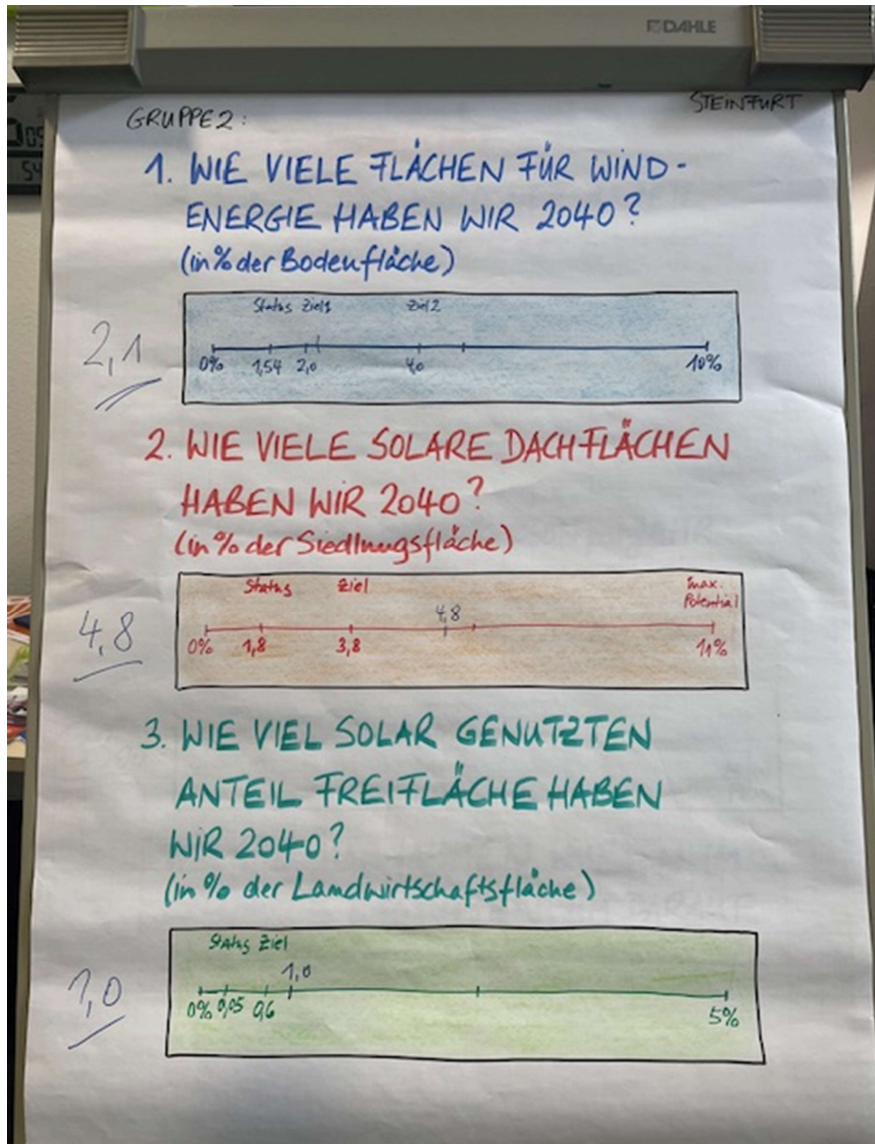 DAHLE
STEINFURT
GRUPPE 2:
1. WIE VIELE FLÄCHEN FÜR WIND-
ENERGIE HABEN WIR 2040?
(in % der Bodenfläche)
Status Ziel1 Ziel2
2,1
0% 1,54 2,0 4,0 10%
2. WIE VIELE SOLARE DACHFLÄCHEN
HABEN WIR 2040?
(in % der Siedlungsfläche)
Status Ziel max.
Potential
4,8
4,8
0% 1,8 3,8 11%
3. WIE VIEL SOLAR GENUTZTEN
ANTEIL FREIFLÄCHE HABEN
WIR 2040?
(in % der Landwirtschaftsfläche)
Status Ziel
1,0
1,0
0% 0,05 0,6 5%